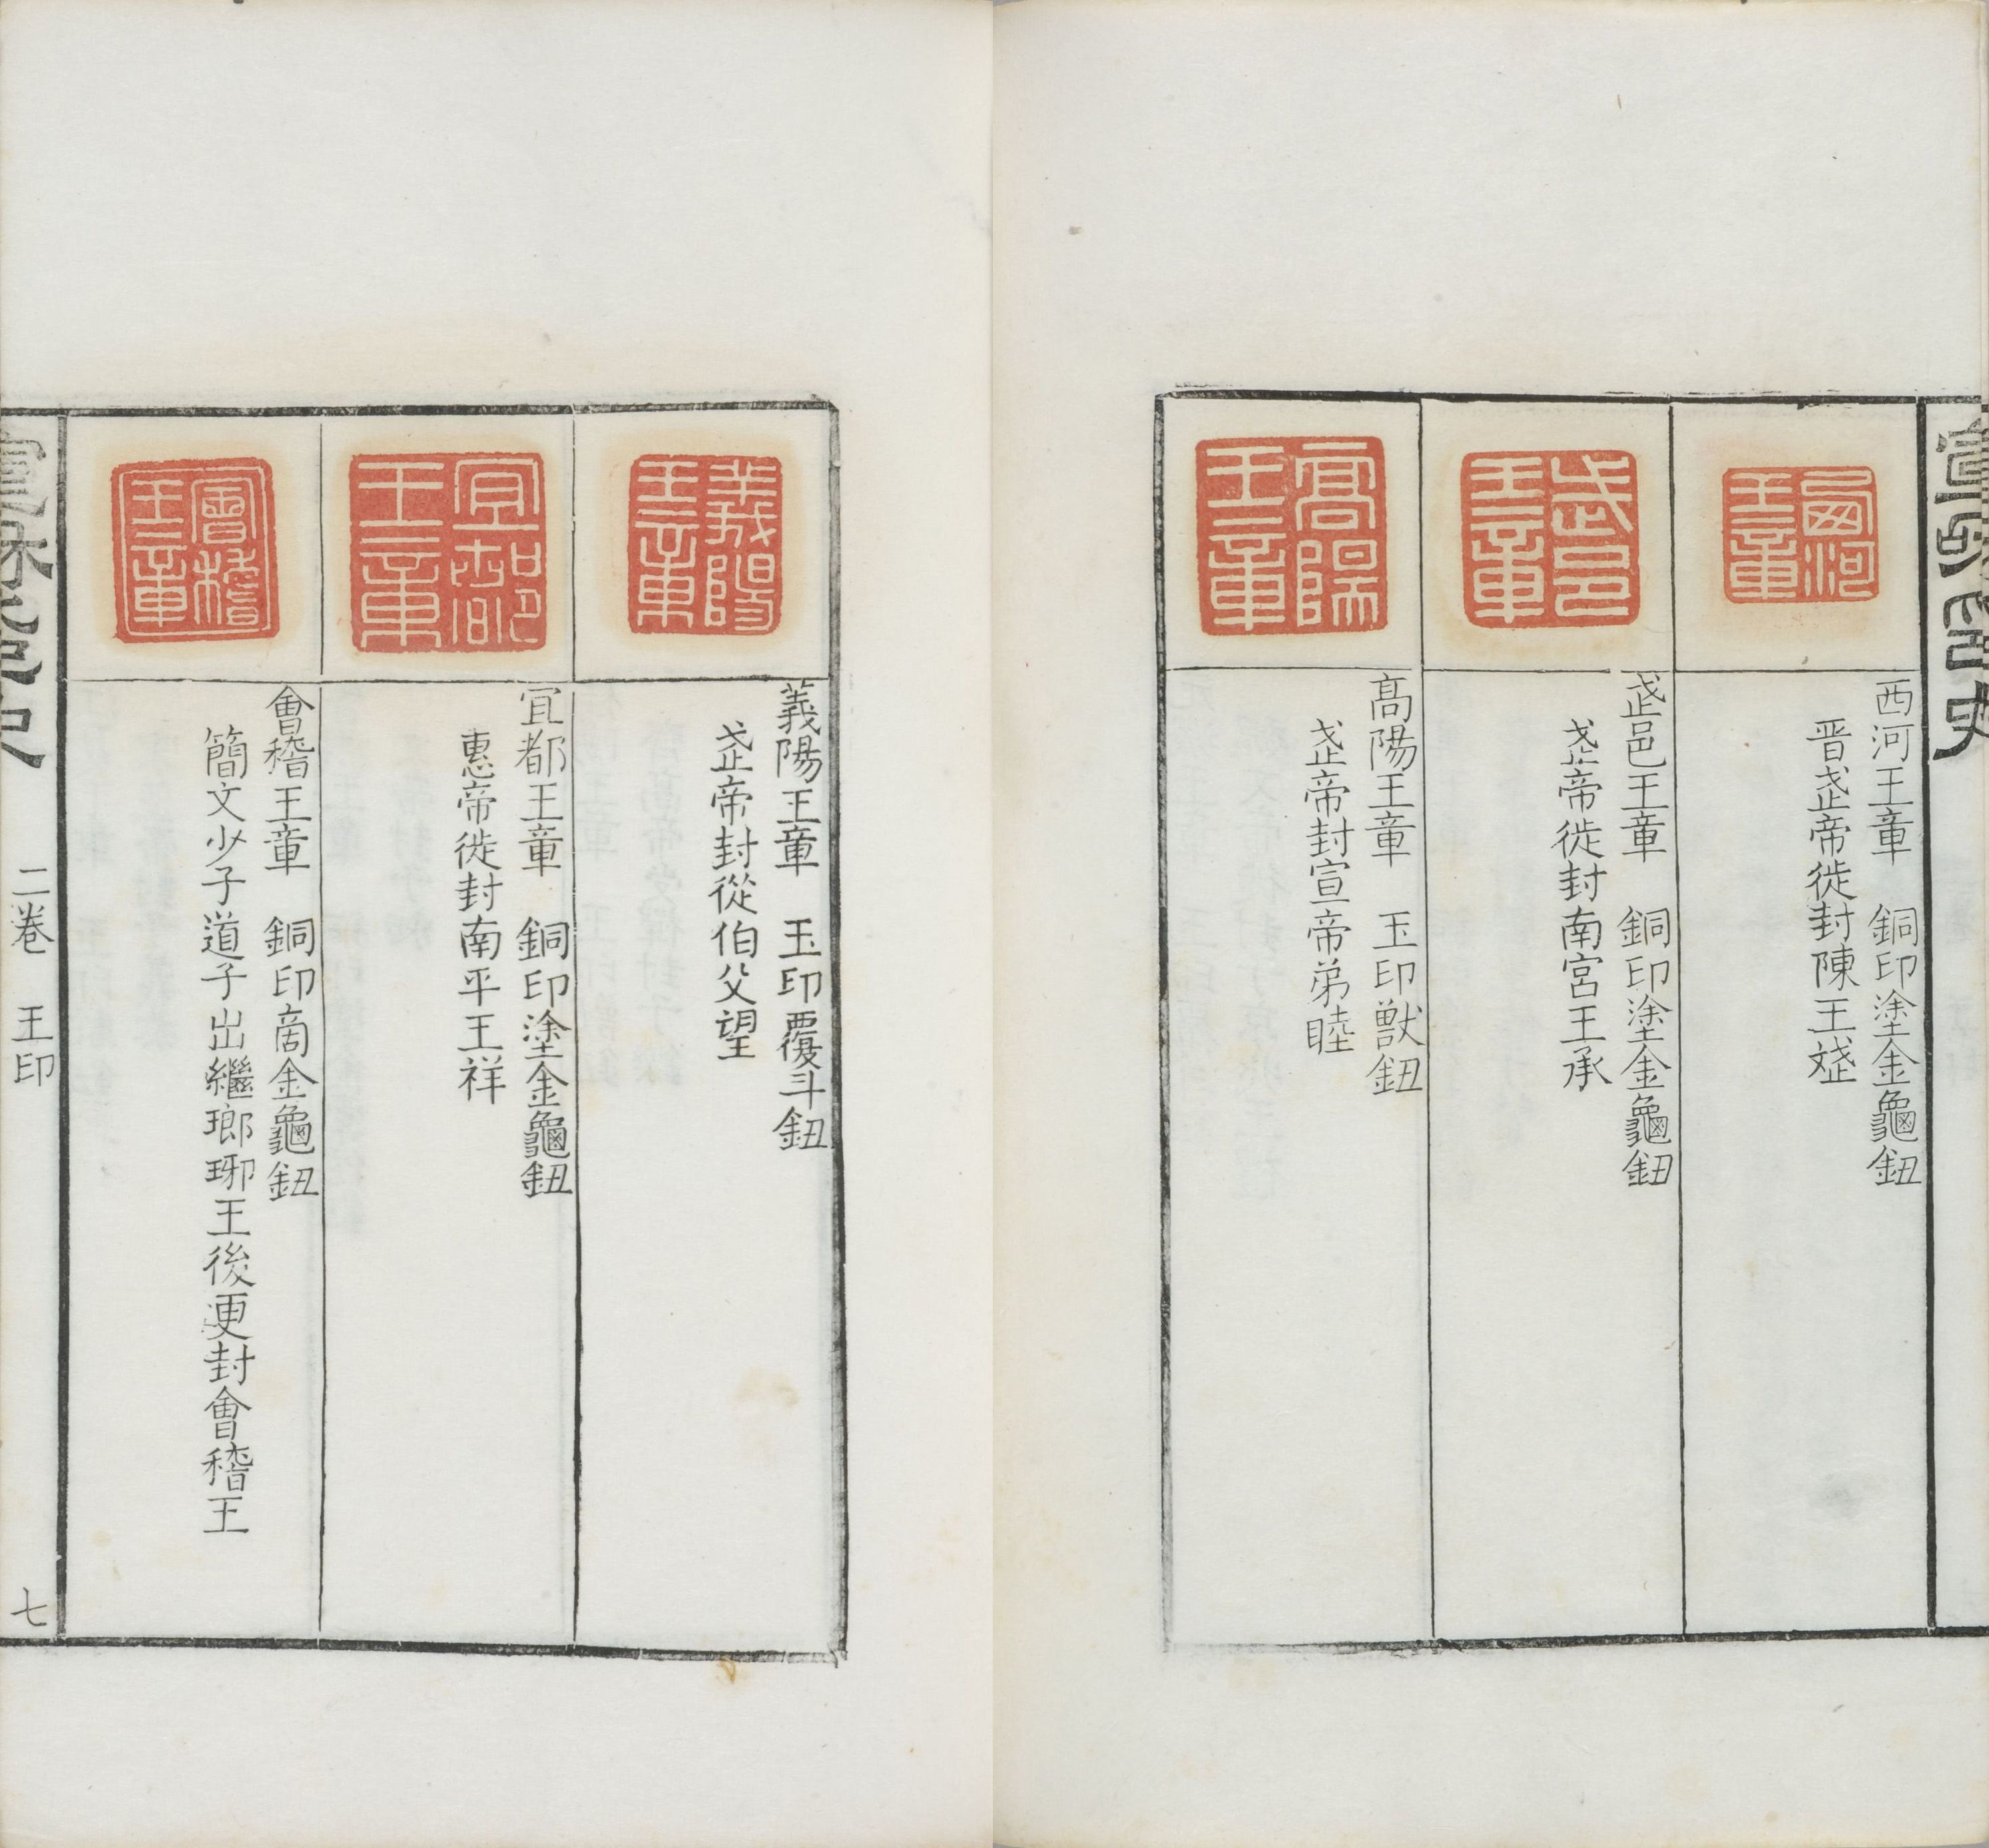 宣和印史
西河
王章
西河王章　銅印塗金龜鈕
晋武帝徙封陳王斌
武邑
王章
武邑王章　銅印塗金龜鈕
武帝徙封南宮王承
高陽
王章
高陽王章　玉印獸鈕
武帝封宣帝弟睦
義陽
王章
義陽王章　玉印覆斗鈕
武帝封從伯父望
宜都
王章
宜都王章　銅印塗金龜鈕
惠帝徙封南平王祥
會稽
王章
會稽王章　銅印商金龜鈕
簡文少子道子出繼瑯琊王後更封會稽王
宣和印史　二卷　王印　七